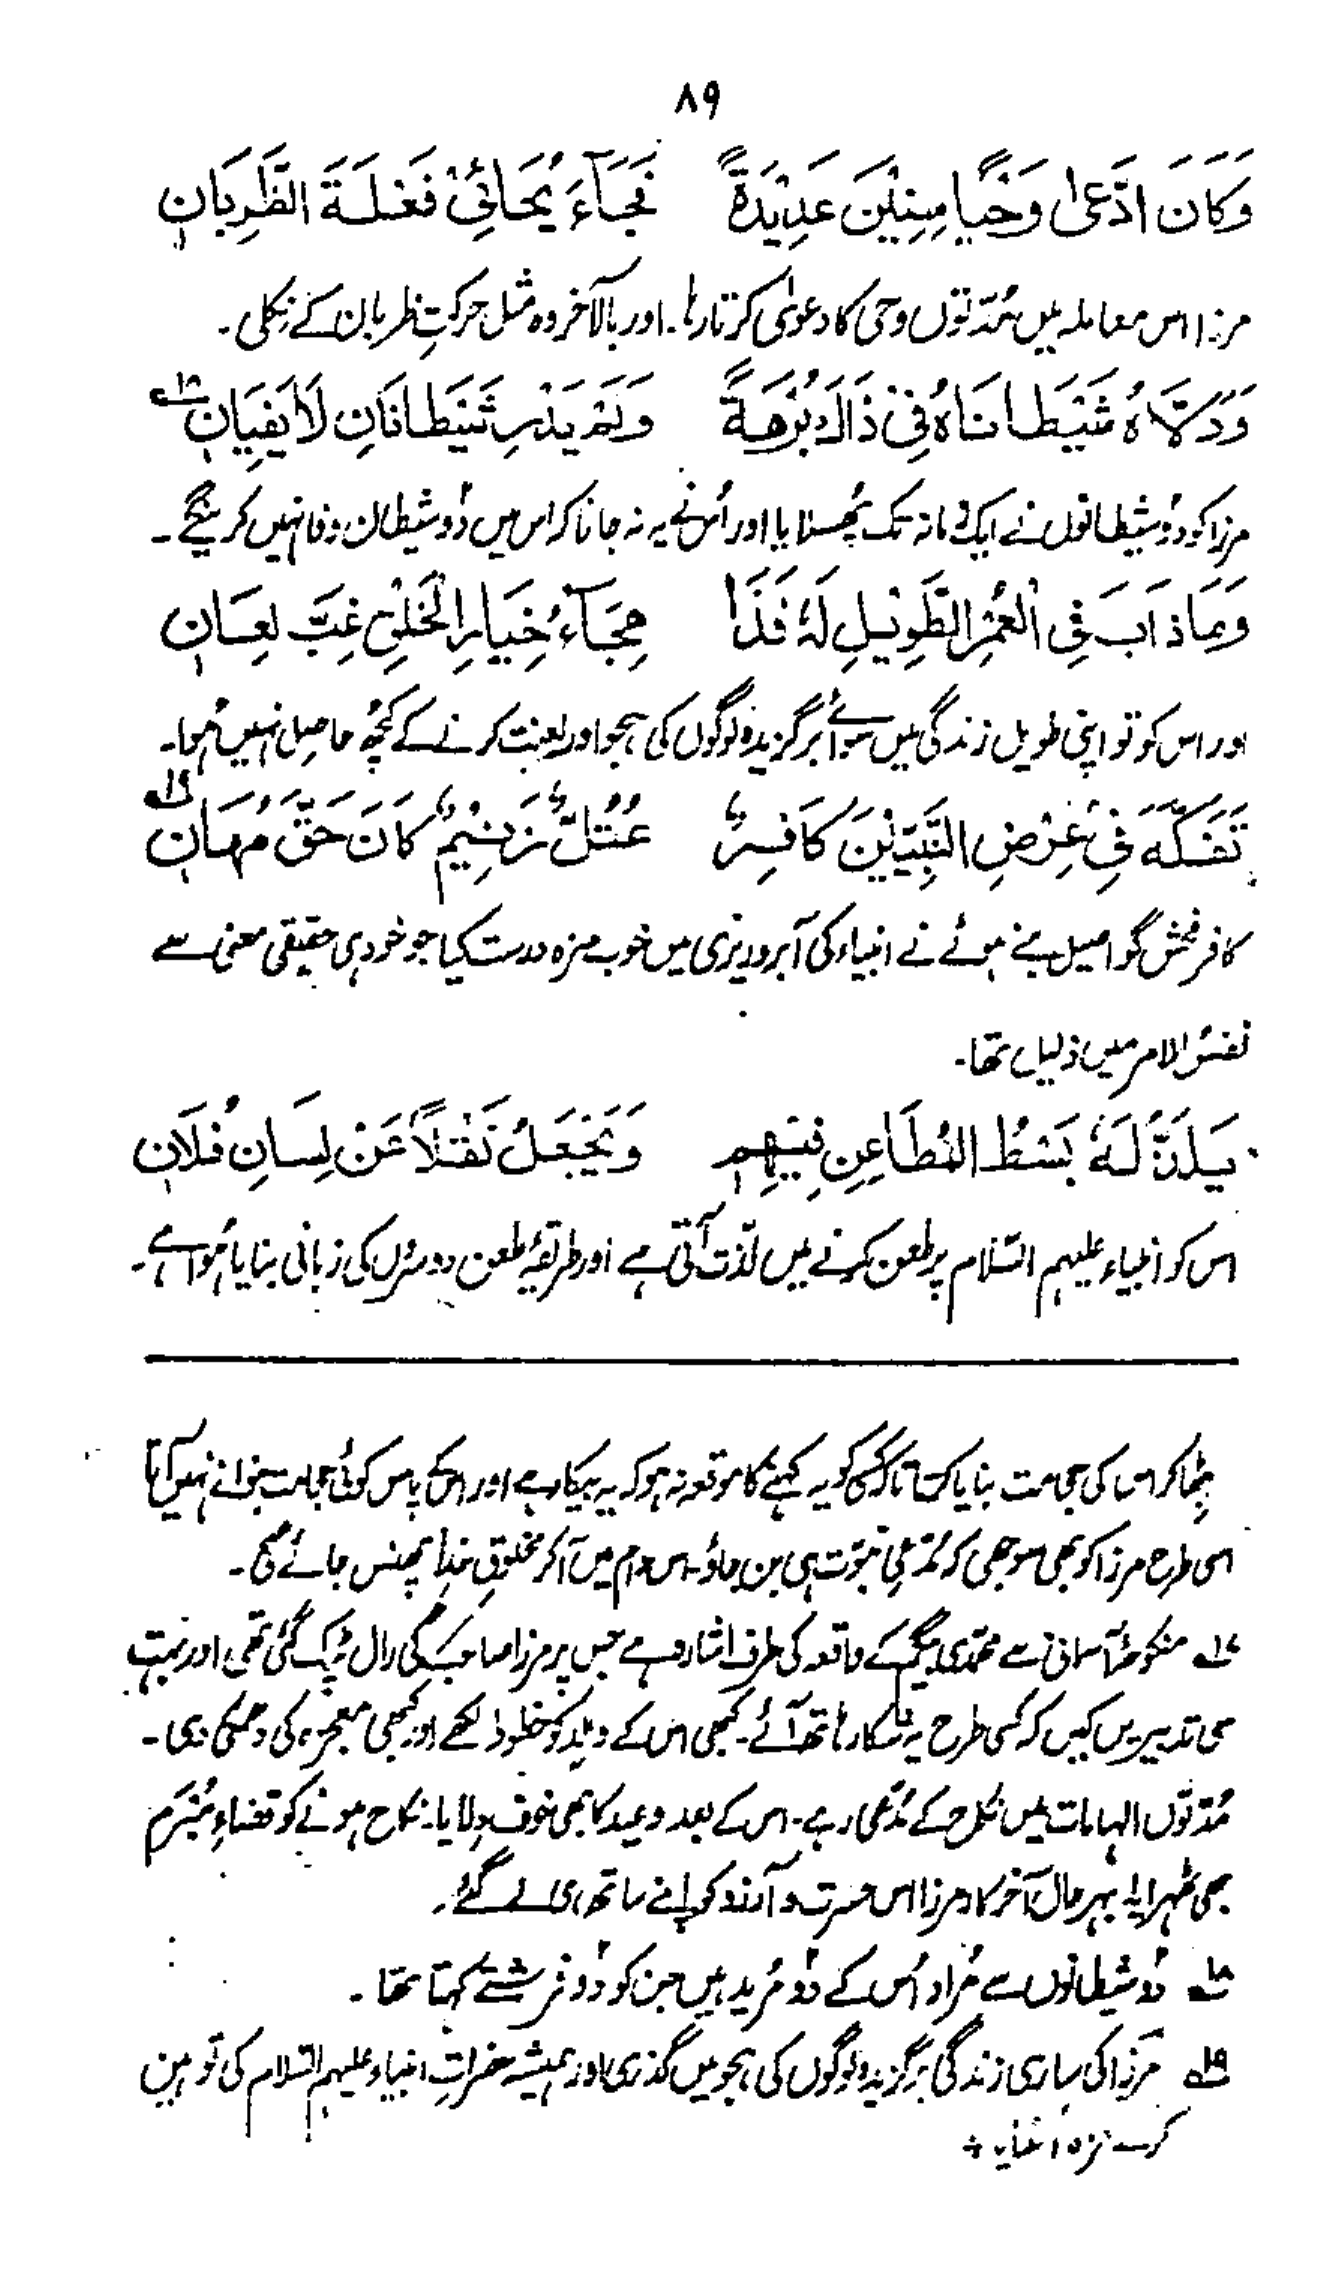 ۸۹
وَكَانَ ادَّعٰى وَحْيًا سِنِيْنَ عَدِيْدَةً فَجَآءَ يُحَائِیْ فَعْلَةَ الظَّرِبَانِ
مرزا اس معاملہ میں مُدّتوں وحی کا دعویٰ کرتا رہا۔ اور بالآخر وہ مثل حرکتِ ظربان کے نکلی۔
وَدَلَّاهُ شَيْطَانَاهُ فِیْ ذَاكَ بُرْهَةً وَلَمْ يَدْرِ شَيْطَانَانِ لَا يَفِيَانِ ۱۸؎
مرزا کو دُو شیطانوں نے ایک زمانہ تک پُھسلایا اور اُس نے یہ نہ جانا کہ اس میں دُو شیطان وفا نہیں کرینگے۔
وَمَاذَابَ فِی الْعُمْرِ الطَّوِيْلِ لَهٗ فَذَا هِجَآءُ خِيَارِ الْخَلْقِ غِبَّ لِعَانِ
اور اس کو تو اپنی طویل زندگی میں سوائے برگزیدہ لوگوں کی ہجو اور لعنت کرنے کے کچھ حاصل نہیں ہوا۔
تَفَكَّهَ فِیْ عِرْضِ النَّبِيّيْنَ كَافِرٌ عُتُلٌّ زَنِيْمٌ كَانَ حَقَّ مُهَانِ ۱۹؎
کافر فحش گو اصیل بنے ہوئے نے انبیاء کی آبروریزی میں خوب مزہ درست کیا جو خود ہی حقیقی معنی سے
نفسُ الامر میں ذلیل تھا۔
يَلَذُّ لَهٗ بَسْطُ الْمُطَاعِنِ فِيْهِمِ وَيَجْعَلُ نَقْلًا عَنْ لِسَانِ فُلَانِ
اس کو انبیاء علیہم السّلام پر طعن کرنے میں لذّت آتی ہے اور طریقۂ طعن دوسرُں کی زبانی بنایا ہُوا ہے۔
بٹھا کر اس کی حجامت بنایا کرتا تاکہ کسی کو یہ کہنے کا موقعہ نہ ہو کہ یہ بیکار ہے اور اسکے پاس کوئی حجامت بنوانے نہیں آیا
اسی طرح مرزا کو بھی سوجھی کہ مُدّعیِ نبوّت ہی بن جاؤ۔ اس دام میں آ کر مخلوقِ خدا پھنس جائے گی۔
۱۷؎ منکوحۂ آسمانی سے محمّدی بیگم کے واقعہ کی طرف اشارہ ہے جس پر مرزا صاحب کی رال ٹپک گئی تھی اور بہت
سی تدبیریں کیں کہ کسی طرح یہ شکار ہاتھ آئے۔ کبھی اس کے والد کو خطوط لکھے اور کبھی معجزہ کی دھمکی دی۔
مُدّتوں الہامات میں نکاح کے مُدّعی رہے۔ اس کے بعد وعید کا بھی خوف دلایا۔ نکاح ہونے کو قضاءِ مُبْرَم
بھی ٹھہرایا۔ بہرحال آخر کار مرزا اس حسرت و آرزو کو اپنے ساتھ ہی لے گئے۔
۱۸؎ دُو شیطانوں سے مُراد اُس کے دُو مُرید ہیں جن کو دُو فرشتے کہتا تھا۔
۱۹؎ مرزا کی ساری زندگی برگزیدہ لوگوں کی ہجو میں گذری اور ہمیشہ حضراتِ انبیاء علیہم السّلام کی توہین
کر کے مزہ اٹھایا +